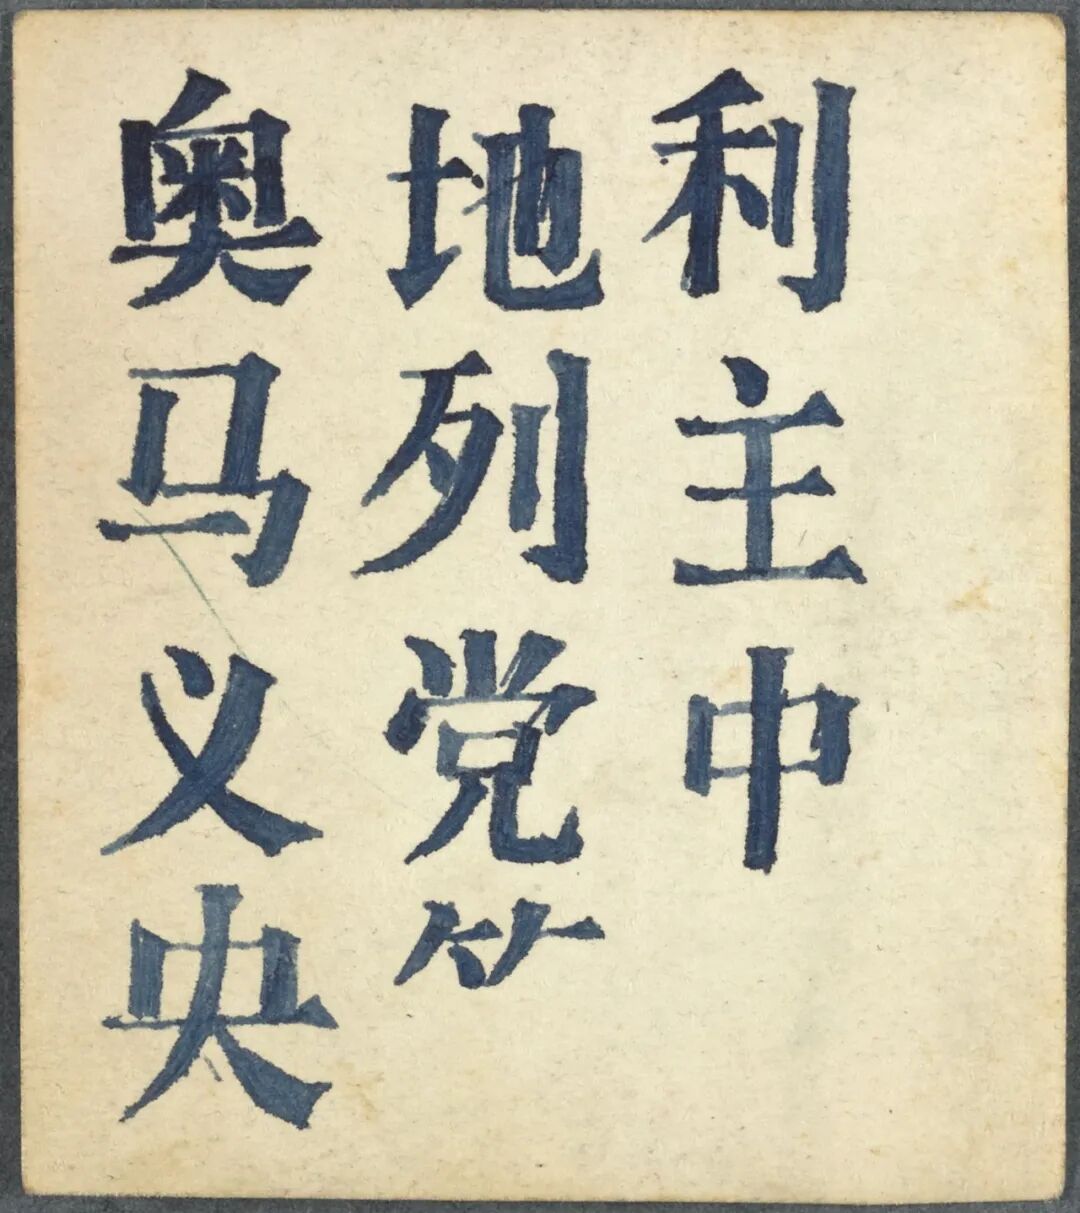 奥地利
马列主
义党中
央⺮